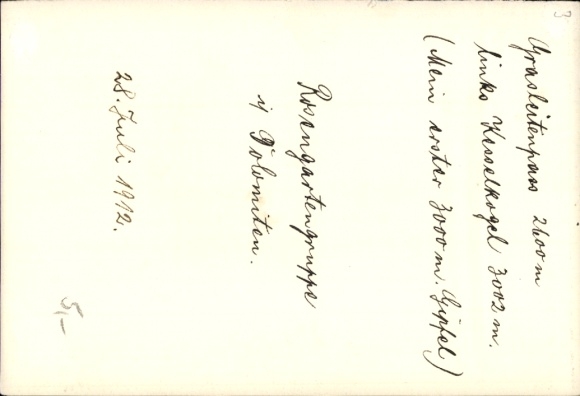 3
Grasleitenpass 2600 m
links Kesselkogel 3002 m.
(Mein erster 3000 m. Gipfel)
Rosengartengruppe
Dolomiten.
28. Juli 1912.
5,-